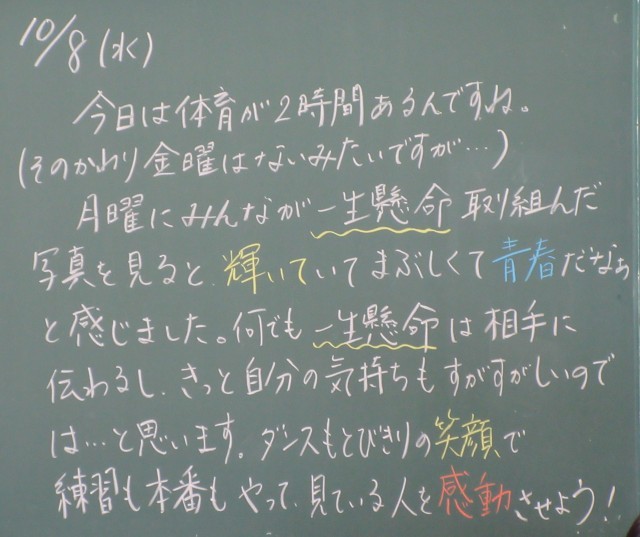 10/8(水)
今日は体育が2時間あるんですね。
(そのかわり金曜はないみたいですが…)
月曜にみんなが一生懸命取り組んだ
写真を見ると、輝いていてまぶしくて青春だなぁ
と感じました。何でも一生懸命は相手に
伝わるし、きっと自分の気持ちもすがすがしいので
は…と思います。ダンスもとびきりの笑顔で
練習も本番もやって、見ている人を感動させよう!